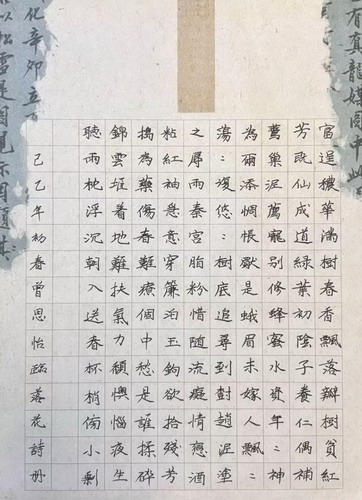 富逞穠華滿樹春香飄落瓣樹貧紅
芳既仙成道綠葉初陰子養仁偶補
鷰巢泥薦寵別修蜂蜜水資年：神
為爾添惆悵厭是蛾眉未嫁人飄：
蕩：復悠：樹底追尋到尌趙泥塗
之辱雨秦宮脂粉惜随流癡情戀酒
粘紅袖急意穿簾泊玉鉤欲拾殘芳
搗為藥傷春難療個中愁是誰揉碎
錦雲堆着地難扶氣力頹懊惱夜生
聽雨枕浮沉朝入送春杯梢傍小剩
己乙年初春曾思怡臨落花詩册
有真龍媒圖中此
化辛卯立